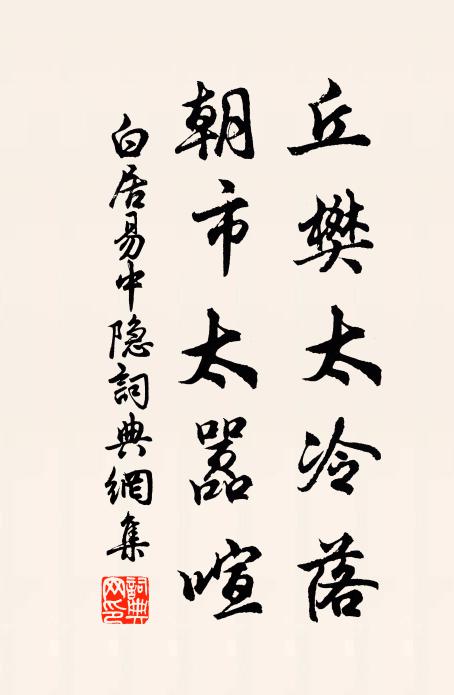 丘樊太冷落
朝市太嚣喧
白居易中隐詞典網集
詞典网印